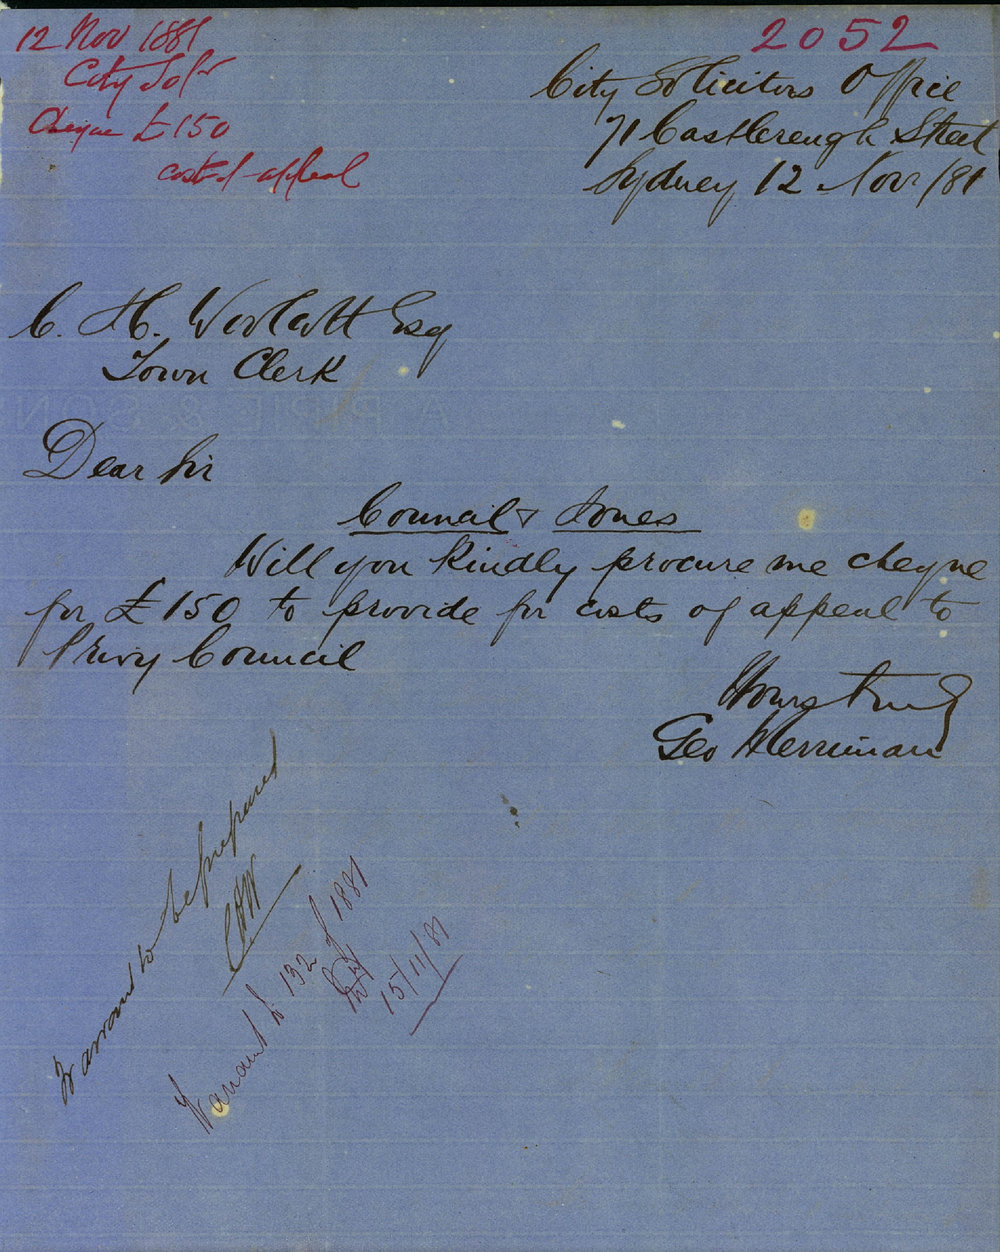 12 Nov 1881
City Solr
Cheque £150
cost of appeal
2052
City Solicitors Office
71 Castlereagh Street
Sydney 12 Novr /81
C. H. Woolcott Esq
Town Clerk
Dear Sir
Council & Jones
Will you kindly procure me cheque
for £150 to provide for costs of appeal to
Privy Council
Yours truly
Geo Merriman
Warrant to be prepared
CHW
Warrant No 132 of 1881
15/11/81